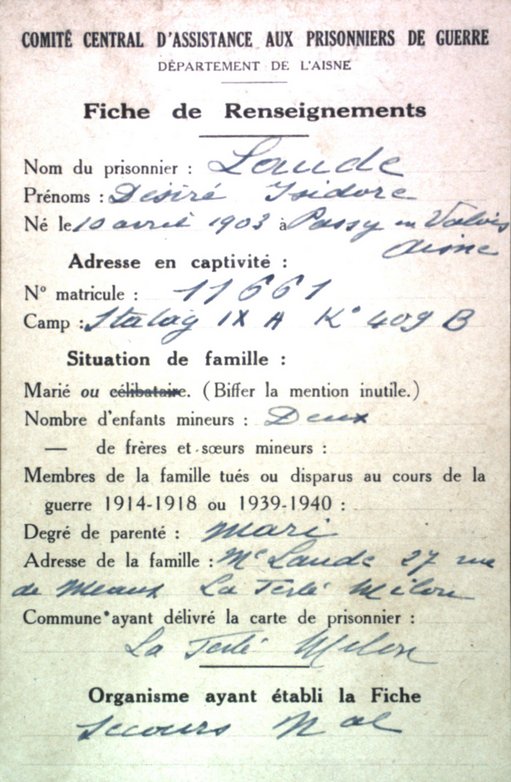 COMITÉ CENTRAL D'ASSISTANCE AUX PRISONNIERS DE GUERRE
DÉPARTEMENT DE L'AISNE
Fiche de Renseignements
Nom du prisonnier : Laude
Prénoms : Désiré Isidore
Né le 10 avril 1903 à Passy en Valois
Aisne
Adresse en captivité :
N° matricule : 11661
Camp : Stalag IX A K° 409 B
Situation de famille :
Marié ou célibataire. (Biffer la mention inutile.)
Nombre d'enfants mineurs : Deux
— de frères et sœurs mineurs :
Membres de la famille tués ou disparus au cours de la
guerre 1914-1918 ou 1939-1940 :
Degré de parenté : mari
Adresse de la famille : Me Laude 27 rue
de Meaux La Ferté Milon
Commune ayant délivré la carte de prisonnier :
La Ferté Milon
Organisme ayant établi la Fiche
Secours Nal